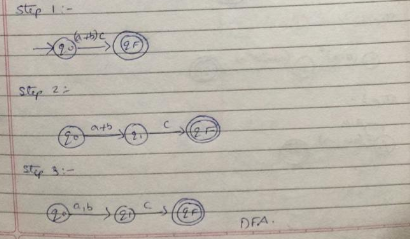 Step 1:-
q0 (a+b)c qF
Step 2:-
q0 a+b q1 c qF
Step 3:-
q0 a,b q1 c qF
DFA.